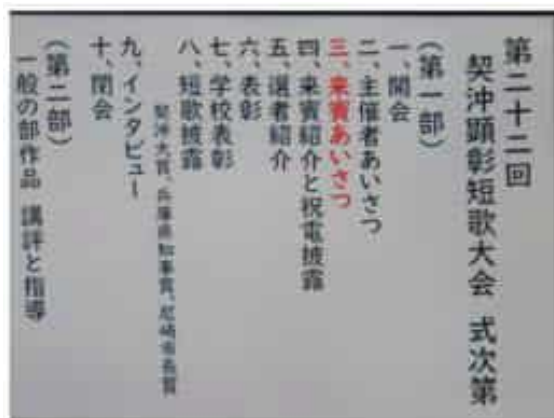 第二十二回
契沖顕彰短歌大会 式次第
(第一部)
一、開会
二、主催者あいさつ
三、来賓あいさつ
四、来賓紹介と祝電披露
五、選者紹介
六、表彰
七、学校表彰
八、短歌披露
契沖大賞、兵庫県知事賞、尼崎市長賞
九、インタビュー
十、閉会
(第二部)
一般の部作品 講評と指導